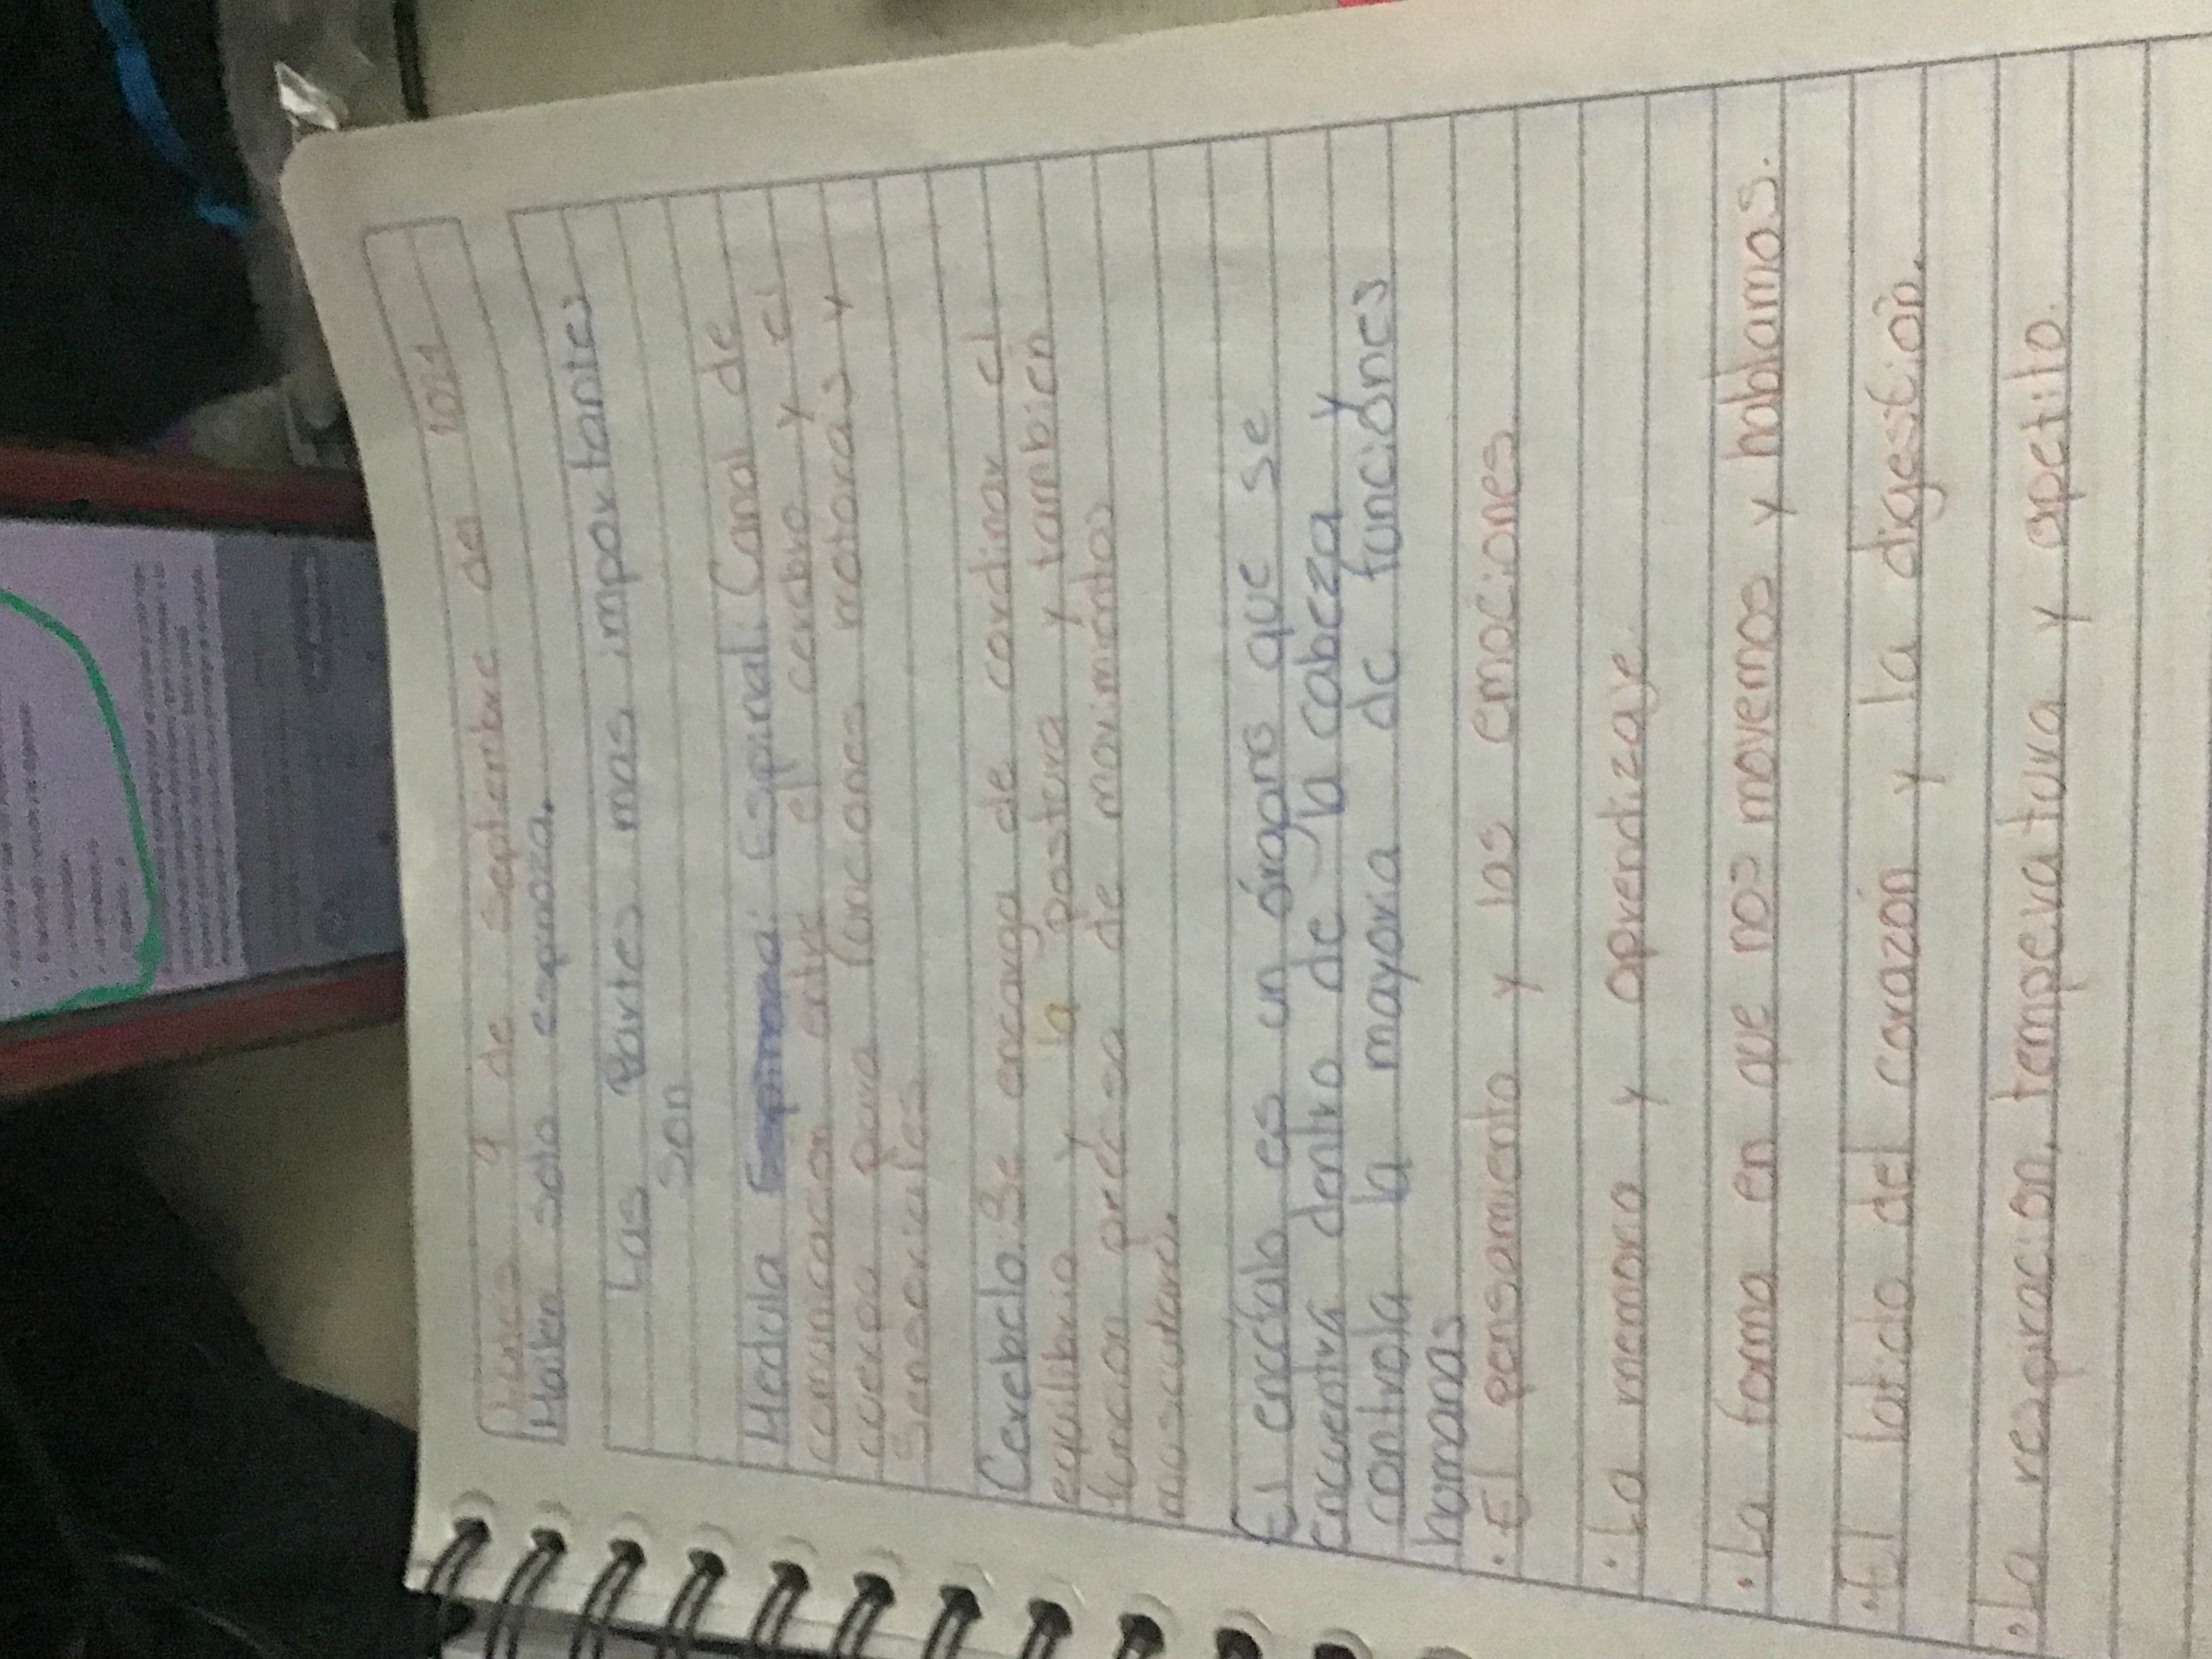 lunes 9 de septiembre del
Halen soto espinoza.
Las Partes mas importantes
son
Medula Espinal. Canal de
comunicacion entre el cerebro y el
cuerpo para funciones motoras y
Sensoriales
Cerebelo. Se encarga de cordinar el
equilibrio y la postura y tambien
funcion precisa de movimientos
musculares.
El encéfalo es un órgano que se
encuentra dentro de la cabeza y
controla la mayoria de funciónes
homanas
• El pensamiento y las emociones.
• La memoria y aprendizaje.
• La forma en que nos movemos y hablamos.
• El latido del corazón y la digestión.
• La respiracion, temperatura y apetito.